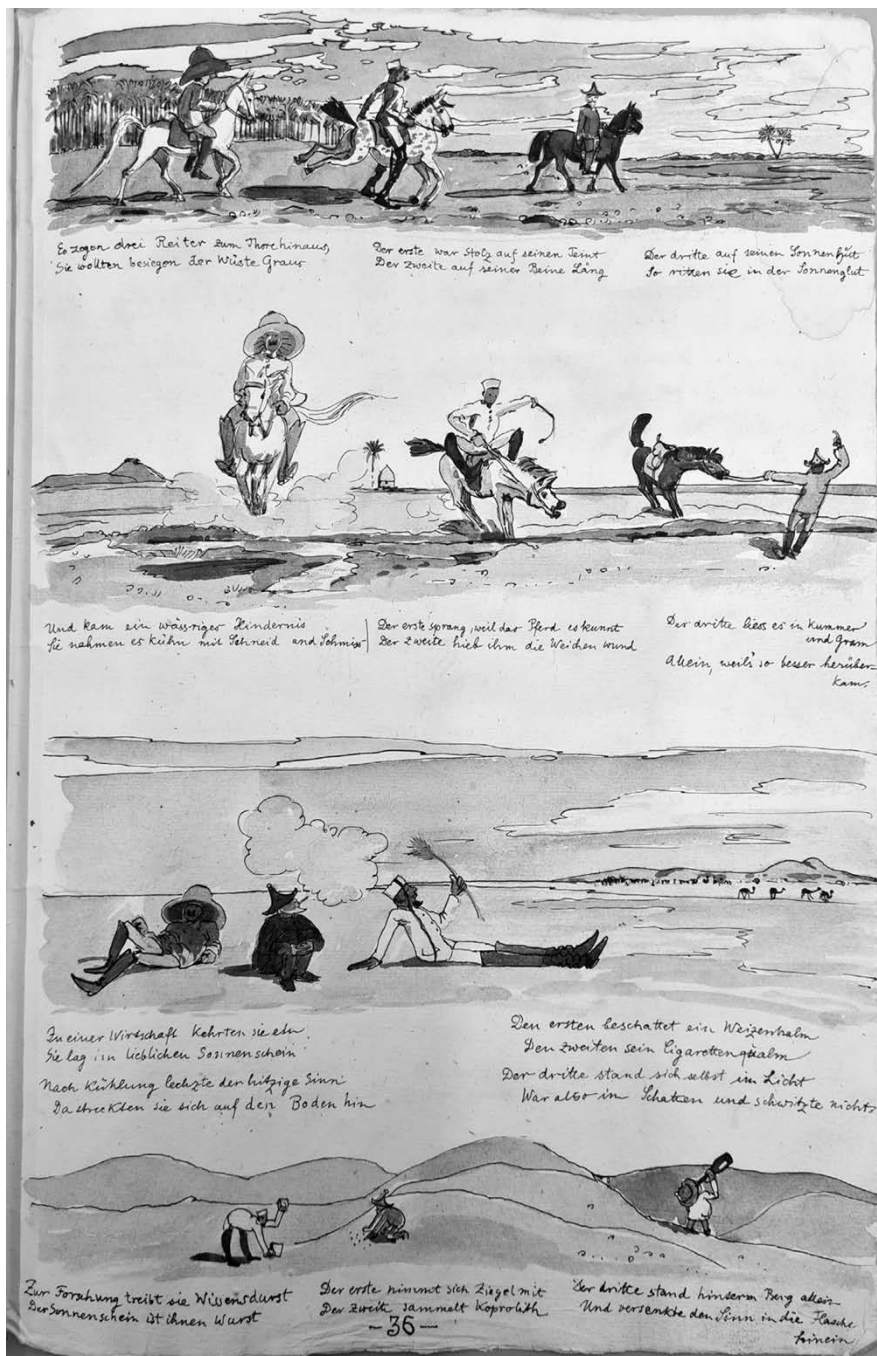 Es zogen drei Reiter zum Thore hinaus,
Sie wollten besiegen der Wüste Graus
Der erste war stolz auf seinen Teint
Der zweite auf seiner Beine Läng
Der dritte auf seinen Sonnenhut
So ritten sie in der Sonnenglut
Und kam ein wässriges Hindernis
Sie nahmen es kühn mit Schneid und Schmiss
Der erste sprang, weil das Pferd es kunnt
Der zweite hieb ihm die Weichen wund
Der dritte liess es in Kummer
und Gram
Allein, weil's so besser herüber-
kam.
Zu einer Wirtschaft kehrten sie ein
Sie lag im lieblichen Sonnenschein
Nach Kühlung lechzte der hitzige Sinn
Da streckten sie sich auf den Boden hin
Den ersten beschattet ein Weizenhalm
Den zweiten sein Cigarettenqualm
Der dritte stand sich selbst im Licht
War also im Schatten und schwitzte nicht
Zur Forschung treibt sie Wissensdurst
Der Sonnenschein ist ihnen Wurst
Der erste nimmt sich Ziegel mit
Der zweite sammelt Koprolith
Der dritte stand hinterm Berg allein
Und versenkte den Sinn in die Flasche
hinein
-36-